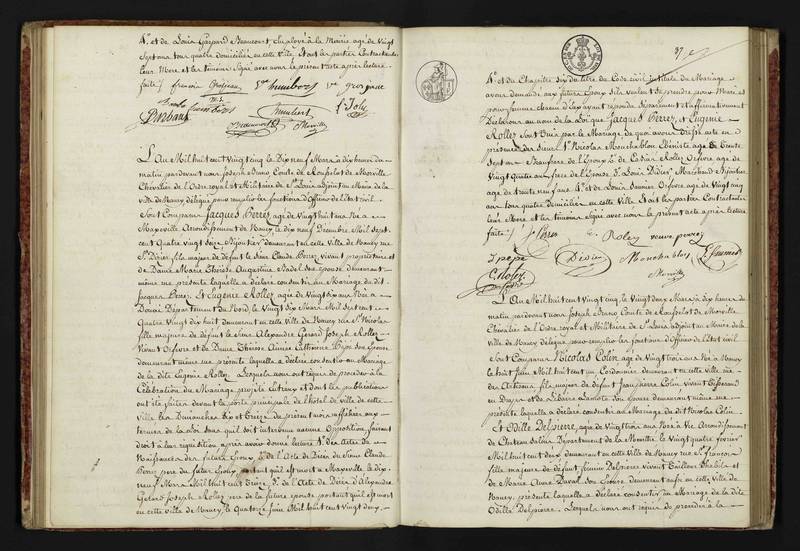 4.° et de Louis Gaspard Beaucourt Employé à la Mairie agé de Vingt
Sept ans tous quatre domiciliés en cette Ville. Et ont les parties Contractantes
leur Mere et les témoins Signé avec nous le présent acte après lecture
faite /
L'An Mil huit cent Vingt cinq le Dix neuf Mars à dix heures du
matin pardevant nous Joseph Bruno Comte de Roufselot de Morville
Chevalier de l'Ordre royal et Militaire de St. Louis adjoint au Maire de la
Ville de Nancy délégué pour remplir les fonctions d'Officier de l'Etat civil
Sont Comparus Jacques Perrez, agé de Vingt huit ans Né à
Maxeville Arrondissement de Nancy le dix neuf Decembre Mil Sept
cent Quatre vingt Seize Bijoutier demeurant en cette Ville de Nancy rue
St. Dizier fils majeur de défunt le Sieur Claude Perrez vivant propriétaire et
de Dame Marie Thérèse Augustine Nadel Son épouse demeurant
même rue présente laquelle a déclaré consentir au Mariage du dit
Jacques Perrez, Et Eugenie Rollez agée de Vingt Six ans Née à
Douai Departement du Nord le Vingt Six Mars Mil Sept cent
Quatre Vingt dix huit demeurant en cette Ville de Nancy rue St. Nicolas
fille majeure de défunt le Sieur Alexandre Gerard Joseph Rollez
Vivant Orfevre et de Dame Thérèse Aimée Catherine Son épouse
demeurant même rue présente laquelle a déclaré consentir au Mariage
de la dite Eugenie Rollez. Lesquels nous ont requis de procéder à la
Célébration du Mariage projetté entr'eux et dont les publications
ont été faites devant la porte principale de l'hôtel de ville de cette
Ville les Dimanches Six et Treize du présent mois affichées aux
termes de la loi sans qu'il soit intervenu aucune Opposition, faisant
droit à leur requisition après avoir donné lecture 1.° des actes de
Naissance des futurs Epoux, 2.° de l'Acte de Décès du Sieur Claude
Perrez pere du futur Epoux portant qu'il est mort à Maxeville le dix
neuf Mars Mil huit cent Treize, 3.° de l'Acte de Décès d'Alexandre
Gerard Joseph Rollez pere de la future épouse portant qu'il est mort
en cette ville de Nancy le Quatorze Juin Mil huit cent Vingt deux,
37
4.° et du Chapitre Six du titre du Code civil intitulé du Mariage
avons demandé aux futurs Epoux s'ils veulent se prendre pour Mari et
pour femme chacun d'eux ayant répondu séparément et affirmativement
Déclarons au nom de la Loi que Jacques Perrez, et Eugenie
Rollez sont unis par le Mariage de quoi avons dressé acte en
présence des Sieurs 1.° Nicolas Mouchablon Ebéniste agé de Trente
Sept ans Beaufrere de l'Epoux, 2.° de Cesar Rollez Orfevre agé de
Vingt quatre ans frere de l'Epouse, 3.° Louis Didier Marchand Bijoutier
agé de trente neuf ans, 4.° et de Louis Saunier Orfevre agé de Vingt cinq
ans tous quatre domiciliés en cette Ville. Et ont les parties Contractantes
leur Mere et les témoins Signé avec nous le présent acte après lecture
faite /
Didier Mouchablon
C. Rollez Morville
L'An Mil huit cent Vingt cinq, le Vingt deux Mars à dix heures du
matin pardevant nous Joseph Bruno Comte de Roufselot de Morville
Chevalier de l'Ordre royal et Militaire de St. Louis adjoint au Maire de la
Ville de Nancy délégué pour remplir les fonctions d'Officier de l'Etat civil
Sont Comparus Nicolas Colin agé de Vingt trois ans Né à Nancy
le huit Juin Mil huit cent un Cordonnier demeurant en cette Ville rue
des fils majeur de défunt Jean pierre Colin vivant Tisserand
en Draps et de Barbe Lamotte Son épouse demeurant même rue
présente laquelle a déclaré consentir au Mariage du dit Nicolas Colin
Et Odille Delpierre, agée de Vingt trois ans Née à Vic Arrondissement
de Chateau Salins Département de la Meurthe le Vingt quatre fevrier
Mil huit cent deux demeurant en cette Ville de Nancy rue St. françois
fille majeure de défunt Delpierre vivant Tailleur d'habits et
de Marie Anne Duval Son épouse demeurant en cette Ville de
Nancy, présente laquelle a déclaré consentir au Mariage de la dite
Odille Delpierre. Lesquels nous ont requis de procéder à la